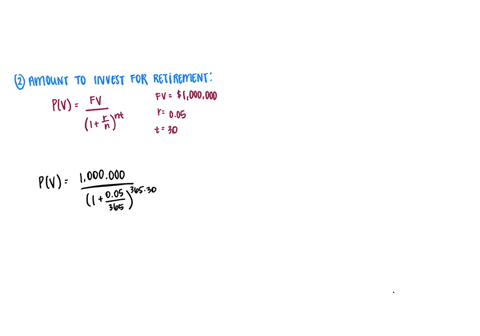 ② AMOUNT TO INVEST FOR RETIREMENT:
P(V) = FV / (1 + r/n)^nt
FV = $1,000.000
r = 0.05
t = 30
P(V) = 1,000.000 / (1 + 0.05/365)^365·30